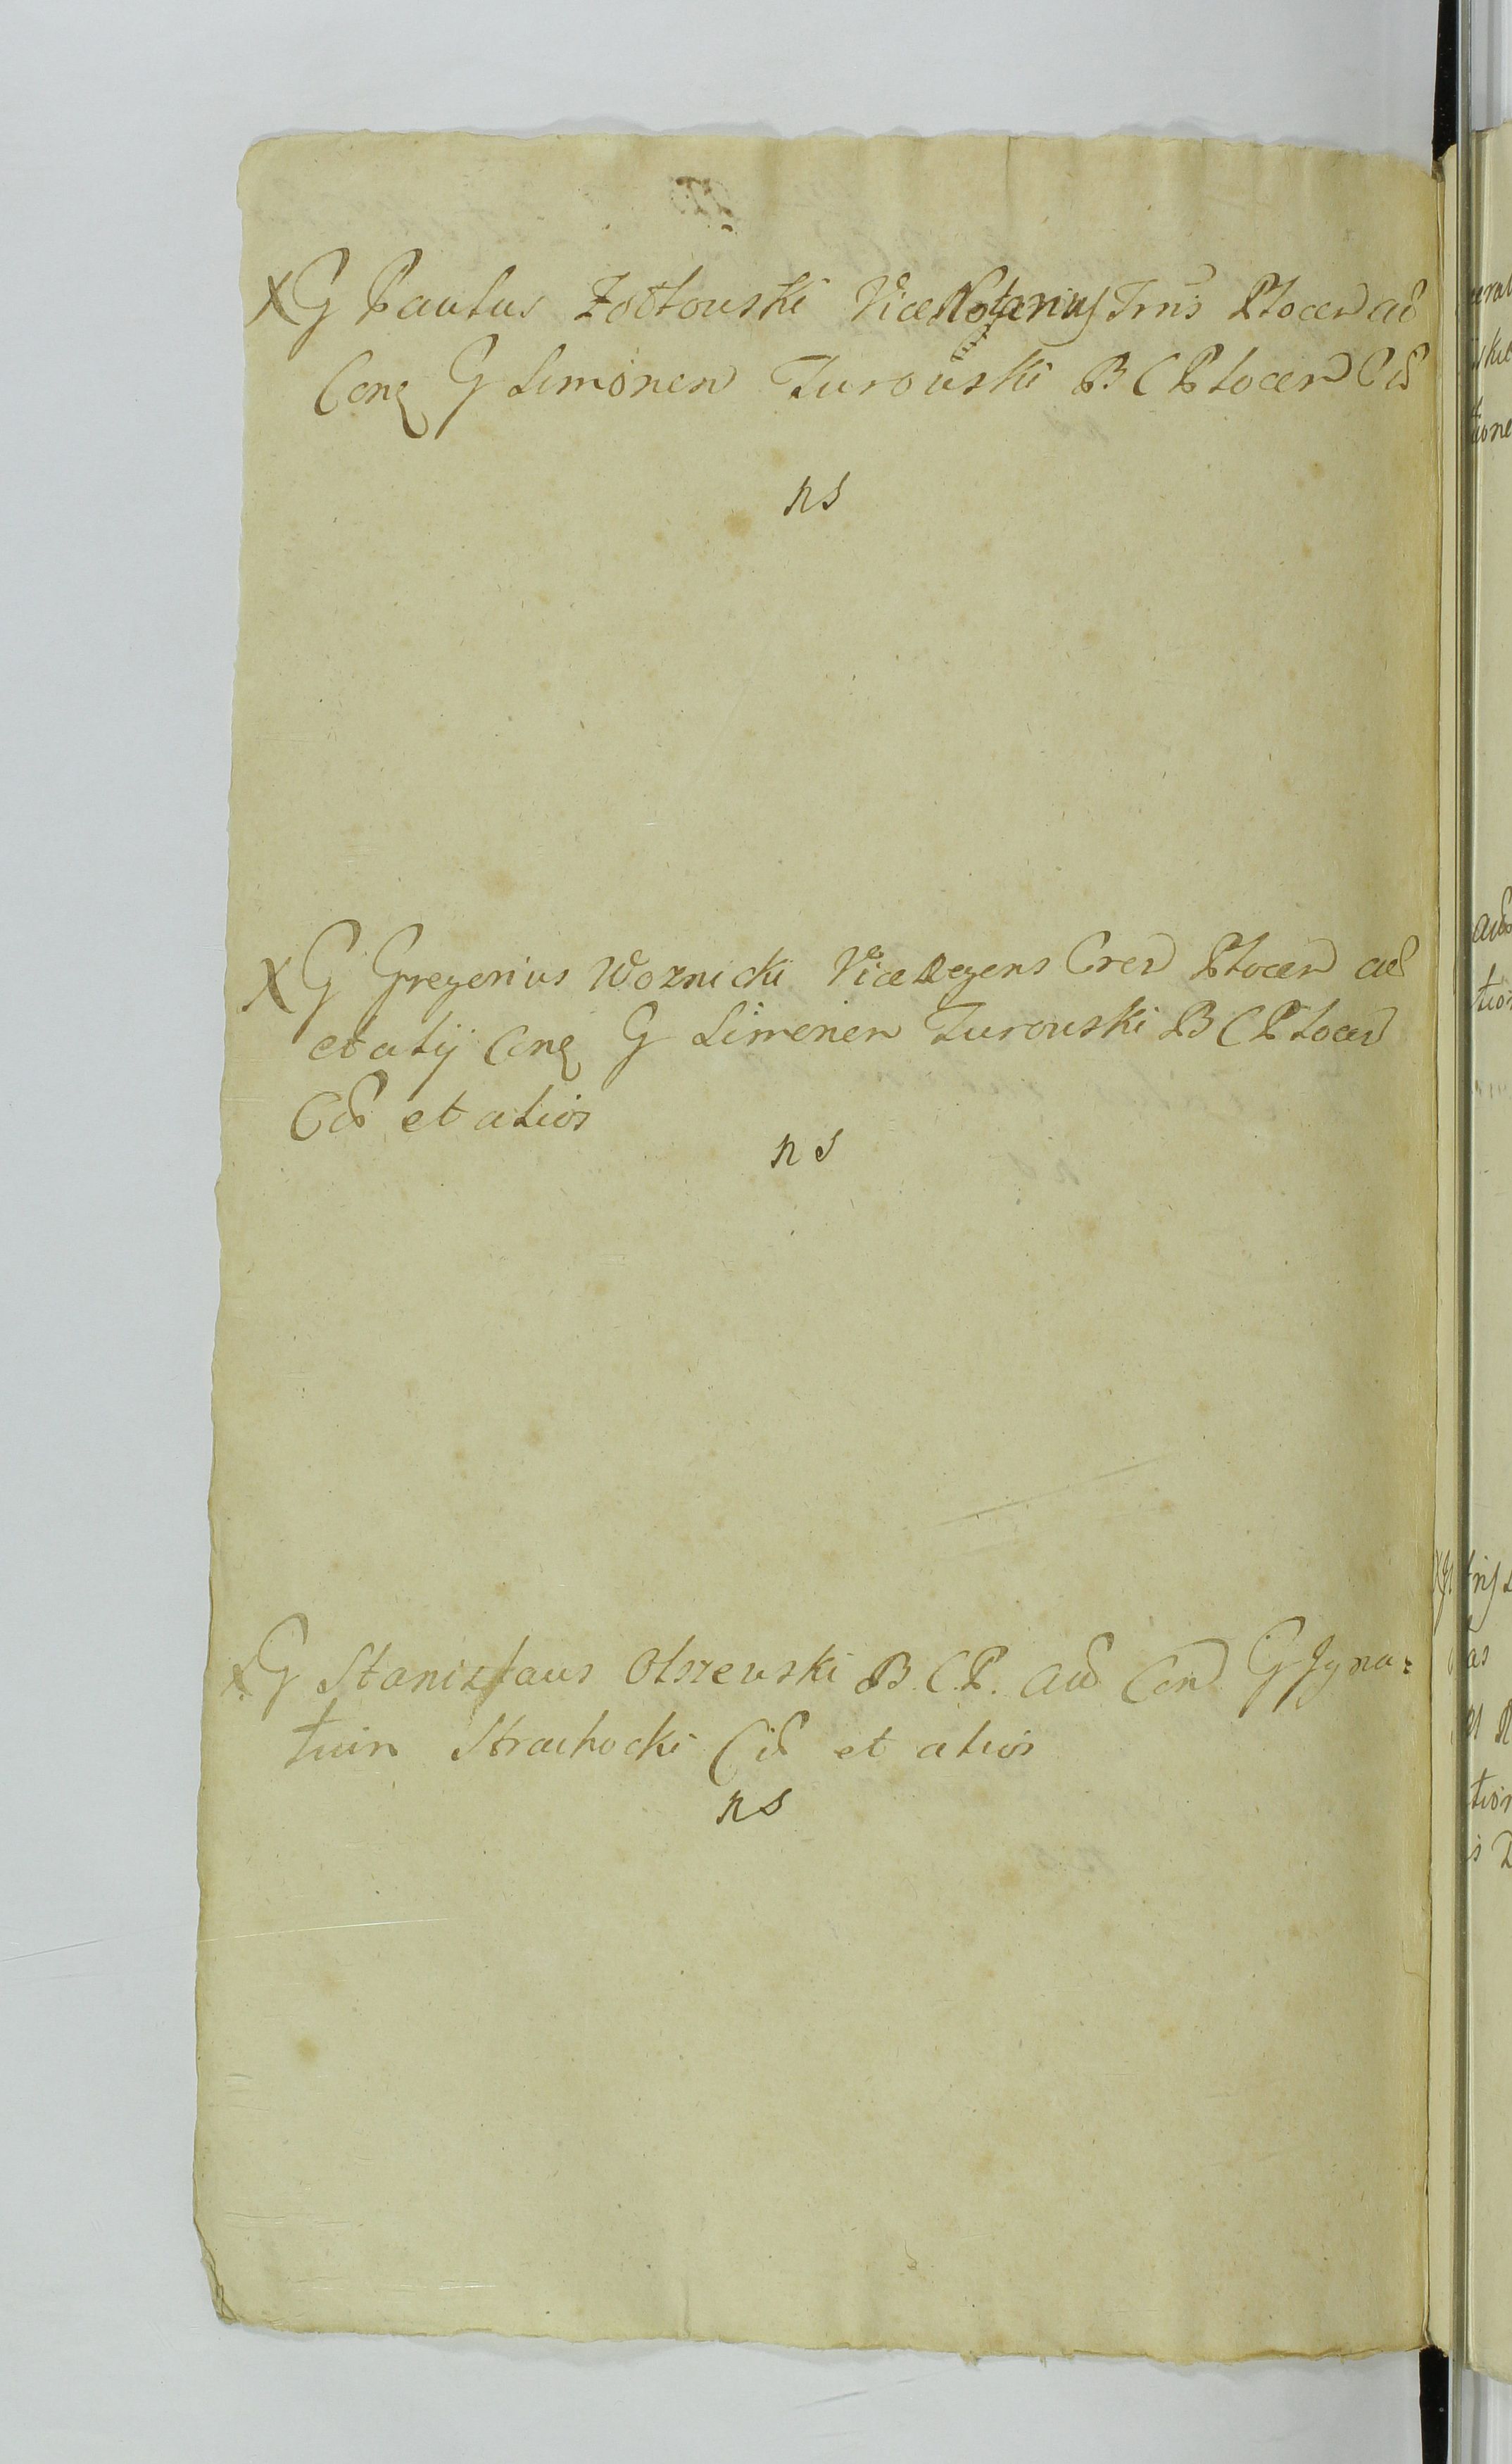 X G Paulus Zołtowski Vice Notarius Trris Plocen ad
Cong G Simonen Turowski B C Plocen Cid
ns
X G Gregorius Woznicki Vice Regens Cren Plocen ad
et alij Cong G Simonen Turowski B C Plocen
Cid et alios
ns
X G Stanisłaus Olszewski B. C. P. ad Con G Igna:
tium Strachocki Cid et alios
ns